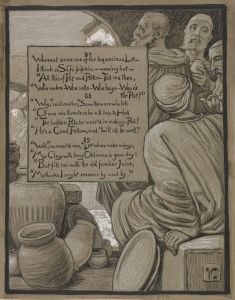 87
Whereat some one of the loquacious Lot—
I think a Súfi pipkin—waxing hot—
"All this of Pot and Potter—Tell me then,
Who makes—Who sells—Who buys—Who is
the Pot?"
88
"Why," said another, "Some there are who tell
Of one who threatens he will toss to Hell
The luckless Pots he marr'd in making—Pish!
He's a Good Fellow, and 't will all be well."
89
"Well," murmur'd one, "Let whoso make or buy,
My Clay with long Oblivion is gone dry:
But fill me with the old familiar Juice,
Methinks I might recover by and by."